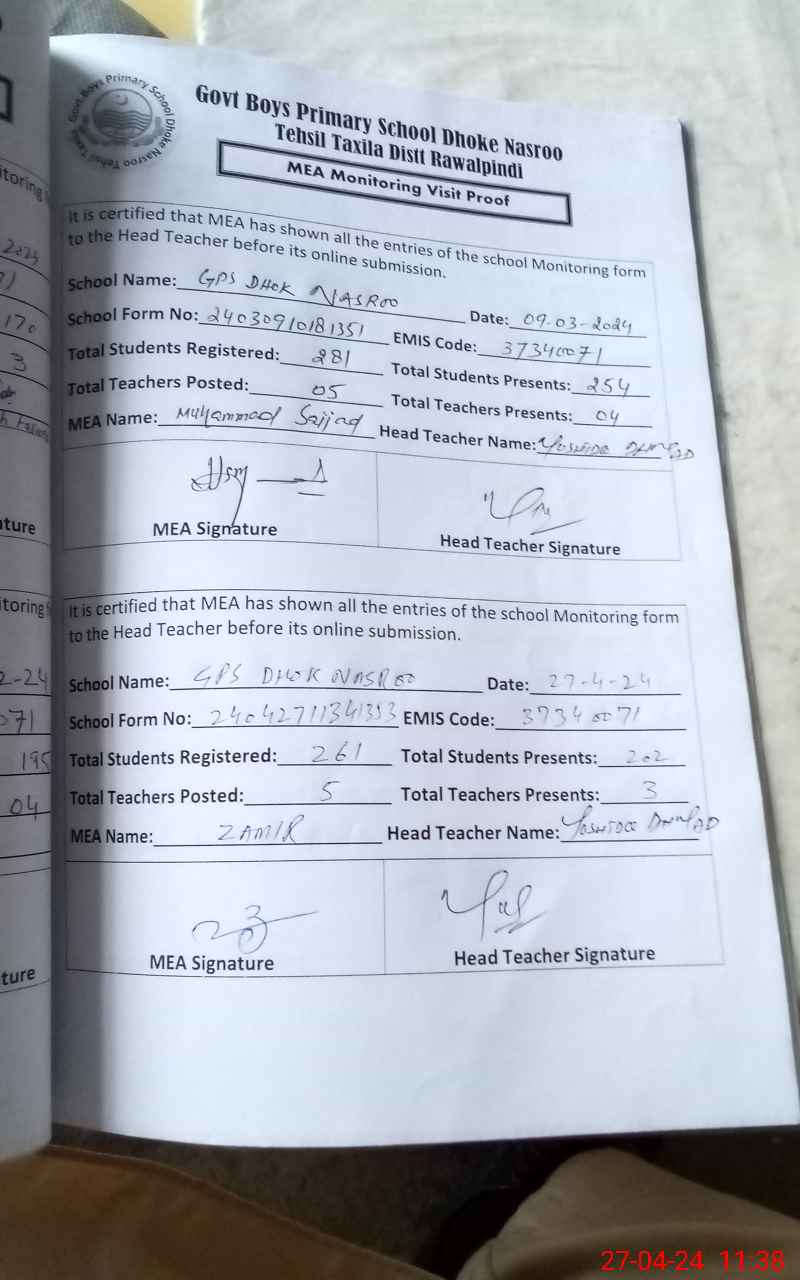 Govt Boys Primary School Dhoke Nasroo Tehsil Taxila
Govt Boys Primary School Dhoke Nasroo
Tehsil Taxila Distt Rawalpindi
MEA Monitoring Visit Proof
It is certified that MEA has shown all the entries of the school Monitoring form
to the Head Teacher before its online submission.
School Name: GPS DHOK NASROO Date: 09-03-2024
School Form No: 24030910181351 EMIS Code: 37340071
Total Students Registered: 281 Total Students Presents: 254
Total Teachers Posted: 05 Total Teachers Presents: 04
MEA Name: Muhammad Sajjad Head Teacher Name:
MEA Signature Head Teacher Signature
It is certified that MEA has shown all the entries of the school Monitoring form
to the Head Teacher before its online submission.
School Name: GPS DHOK NASROO Date: 27-4-24
School Form No: 24042711341353 EMIS Code: 37340071
Total Students Registered: 261 Total Students Presents: 202
Total Teachers Posted: 5 Total Teachers Presents: 3
MEA Name: ZAMIR Head Teacher Name:
MEA Signature Head Teacher Signature
itoring
2024
170
3
ture
itoring
2-24
071
195
04
ture
27-04-24 11:38